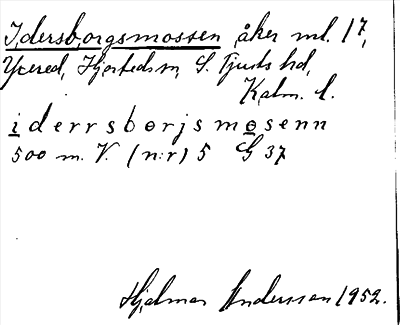 Idersborgsmossen åker ml. 17,
Ycered, Hjorteds sn, S. Tjusts hd,
Kalm. l.
i derrsborjsmosenn
500 m. V. (n:r) 5 G 37
Hjalmar Andersson 1952.